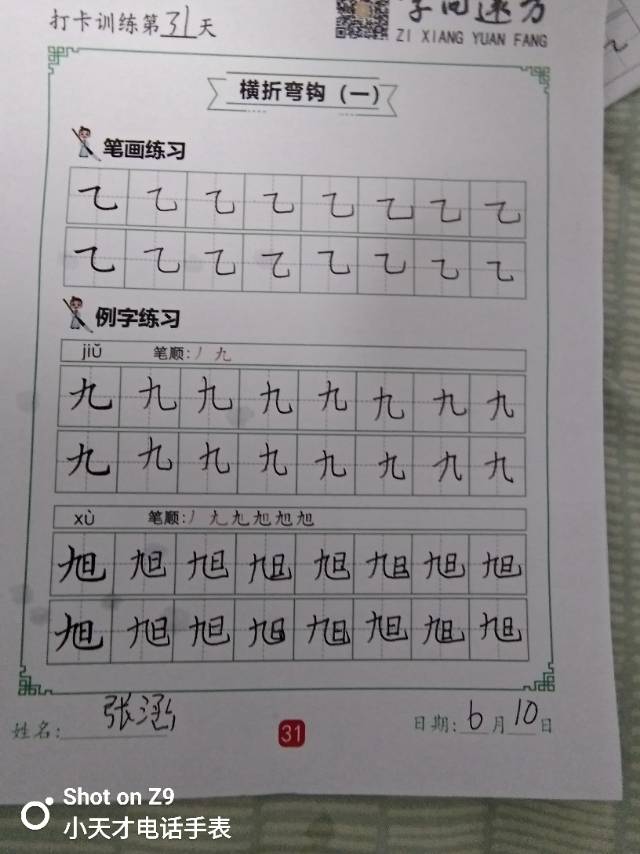 打卡训练第31天
字向远方
ZI XIANG YUAN FANG
横折弯钩（一）
笔画练习
乙 乙 乙 乙 乙 乙 乙 乙
乙 乙 乙 乙 乙 乙 乙 乙
例字练习
jiǔ 笔顺:丿 九
九 九 九 九 九 九 九 九
九 九 九 九 九 九 九 九
xù 笔顺:丿 九 九 旭 旭 旭
旭 旭 旭 旭 旭 旭 旭 旭
旭 旭 旭 旭 旭 旭 旭 旭
姓名: 张涵 31 日期: 6 月 10 日
Shot on Z9
小天才电话手表